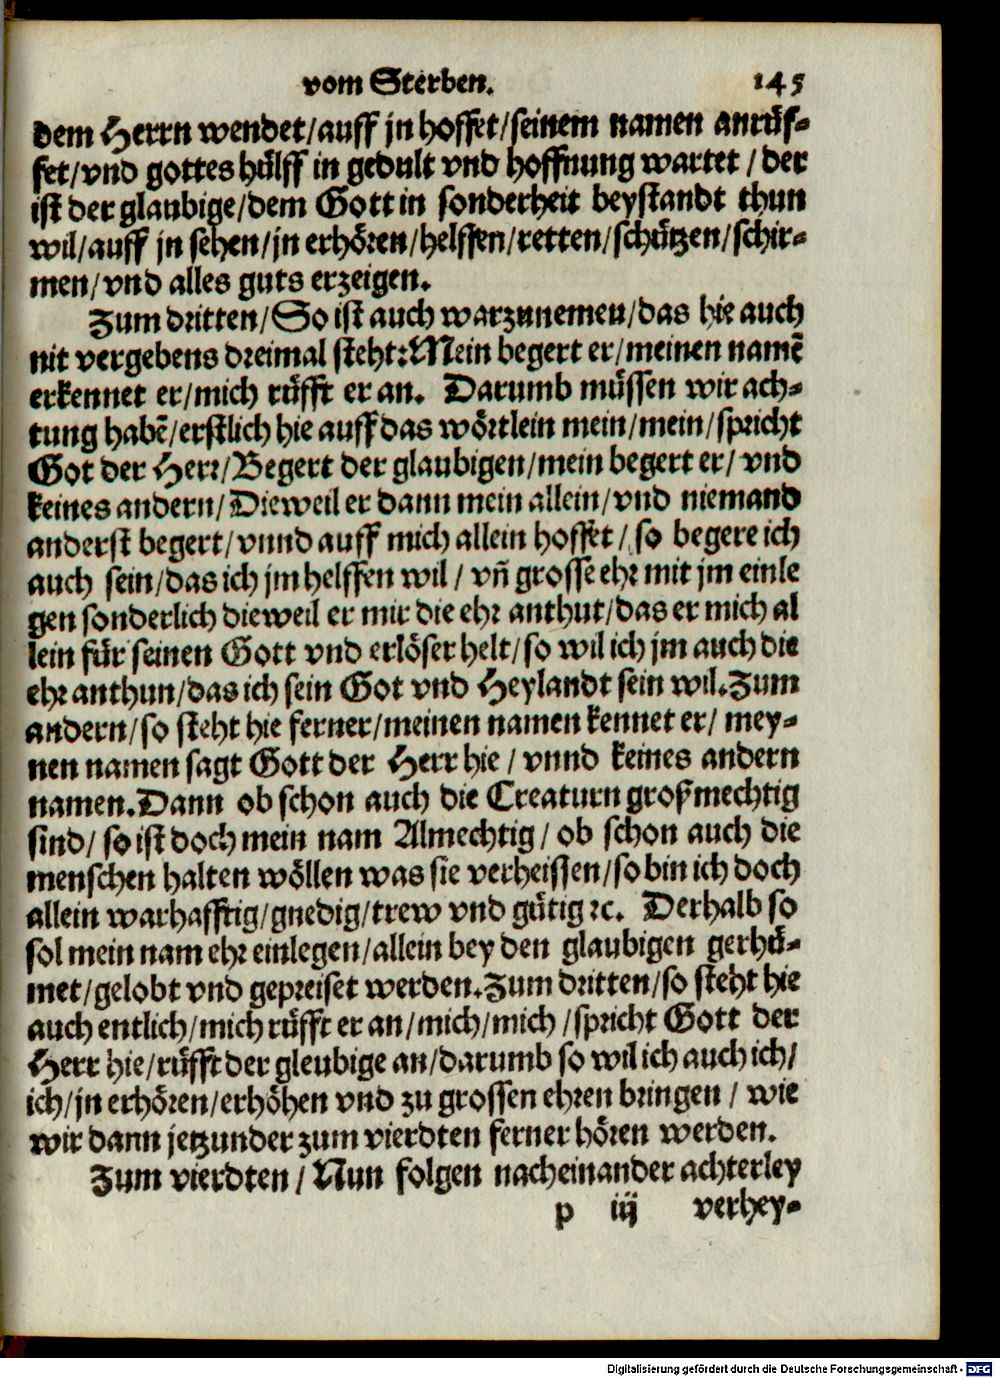 vom Sterben. 145
dem Herrn wendet/auff jn hoffet/seinem namen anrüf-
fet/vnd gottes hülff in gedult vnd hoffnung wartet / der
ist der glaubige/dem Gott in sonderheit beystandt thun
wil/auff jn sehen/jn erhören/helffen/retten/schützen/schir-
men/vnd alles guts erzeigen.
Zum dritten/So ist auch warzunemen/das hie auch
nit vergebens dreimal steht:Mein begert er/meinen namẽ
erkennet er/mich rüfft er an. Darumb müssen wir ach-
tung habẽ/erstlich hie auff das wörtlein mein/mein/spricht
Got der Herr/Begert der glaubigen/mein begert er/ vnd
keines andern/Dieweil er dann mein allein/vnd niemand
anderst begert/vnnd auff mich allein hoffet/ so begere ich
auch sein/das ich jm helffen wil / vñ grosse ehr mit jm einle
gen sonderlich dieweil er mir die ehr anthut/das er mich al
lein für seinen Gott vnd erlöser helt/so wil ich jm auch die
ehr anthun/das ich sein Got vnd Heylandt sein wil.Zum
andern/so steht hie ferner/meinen namen kennet er/ mey-
nen namen sagt Gott der Herr hie / vnnd keines andern
namen.Dann ob schon auch die Creaturn großmechtig
sind/ so ist doch mein nam Almechtig/ ob schon auch die
menschen halten wöllen was sie verheissen/so bin ich doch
allein warhafftig/gnedig/trew vnd gütig ꝛc. Derhalb so
sol mein nam ehr einlegen/allein bey den glaubigen gerhü-
met/gelobt vnd gepreiset werden.Zum dritten/so steht hie
auch entlich/mich rüfft er an/mich/mich /spricht Gott der
Herr hie/rüfft der gleubige an/darumb so wil ich auch ich/
ich/jn erhören/erhöhen vnd zu grossen ehren bringen / wie
wir dann jetzunder zum vierdten ferner hören werden.
Zum vierdten / Nun folgen nacheinander achterley
p iij verhey-
Digitalisierung gefördert durch die Deutsche Forschungsgemeinschaft - DFG